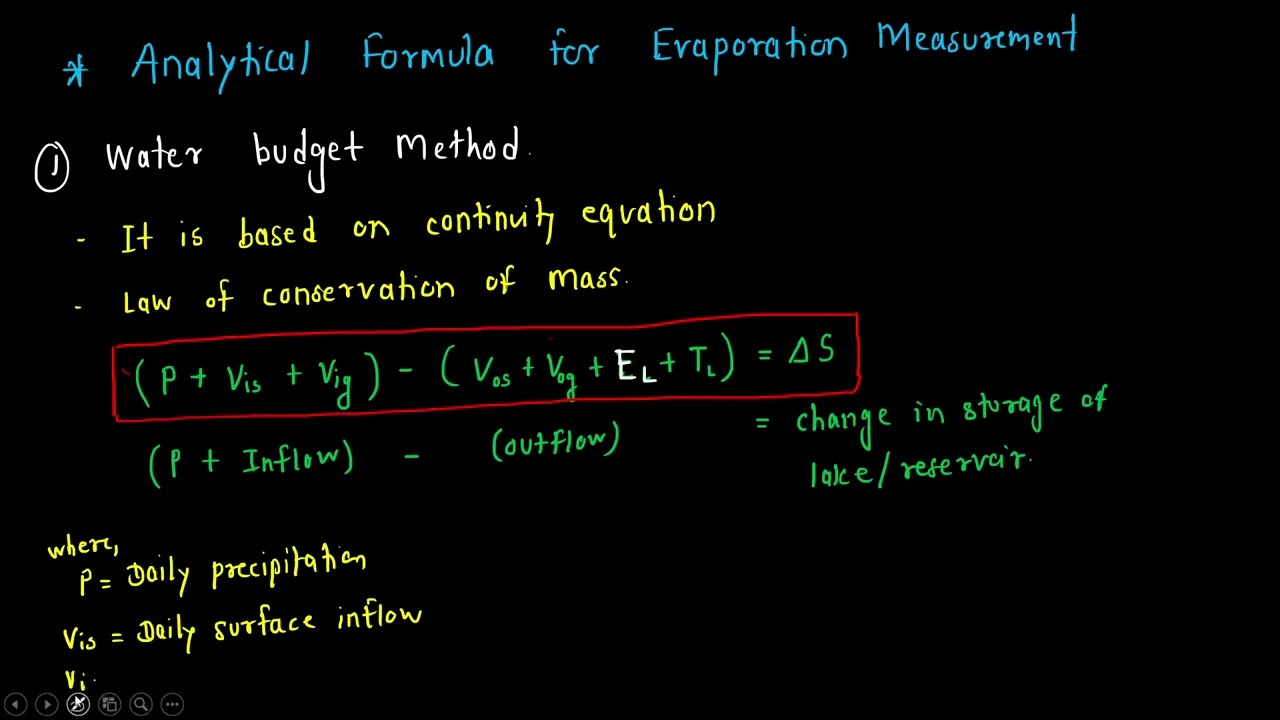 * Analytical Formula for Evaporation Measurement
① Water budget Method.
- It is based on continuity equation
- Law of conservation of mass.
(P + Vis + Vig) - (Vos + Vog + EL + TL) = ΔS
(P + Inflow) - (outflow) = change in storage of
lake/reservoir.
where,
P = Daily precipitation
Vis = Daily surface inflow
Vi